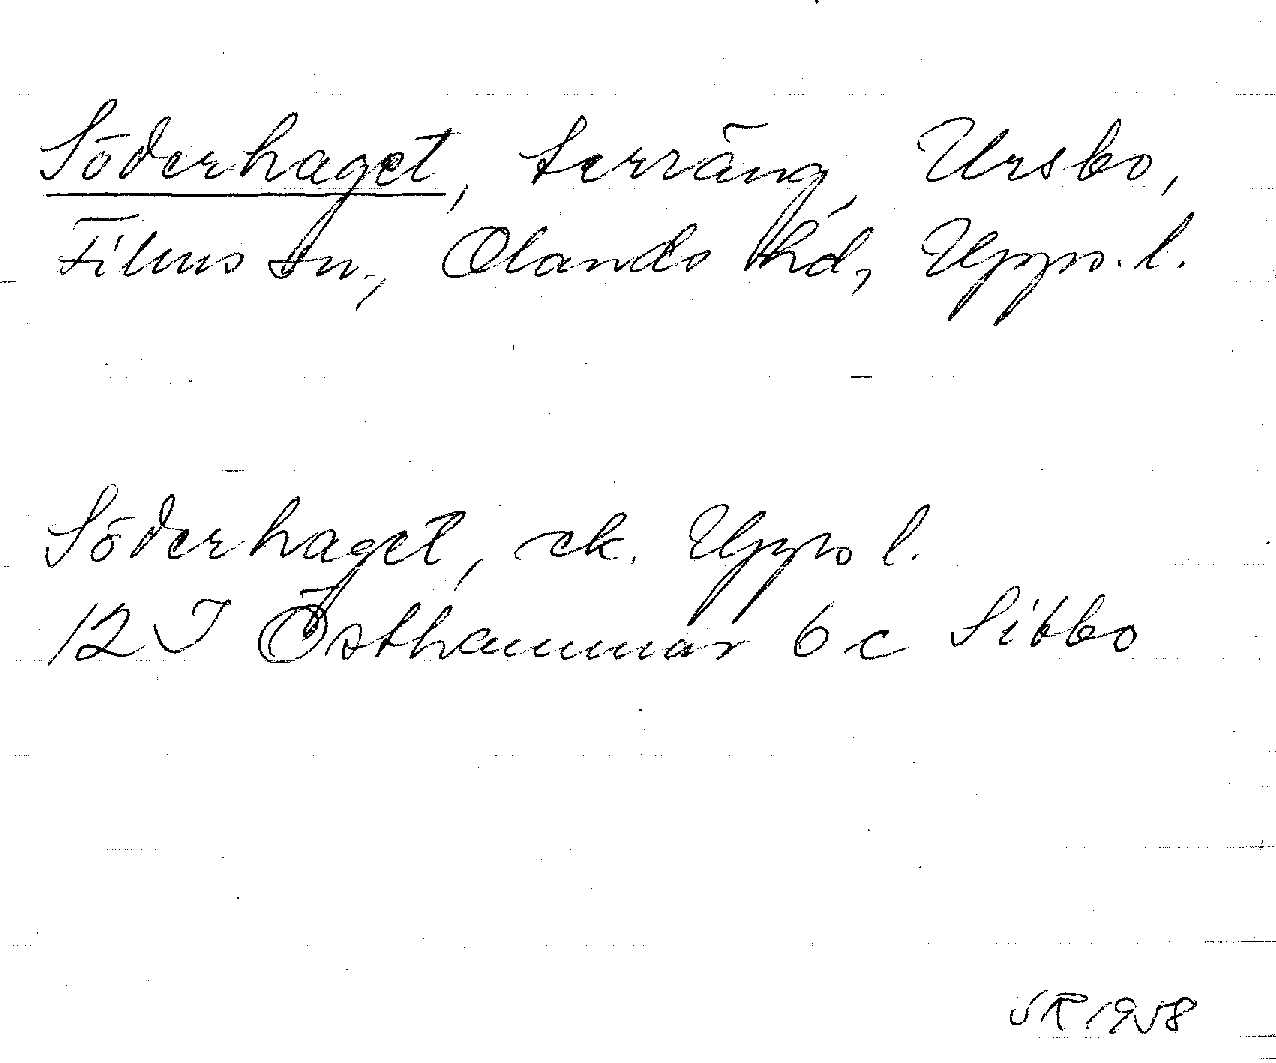 Söderhaget, terräng, Ursbo,
Films sn, Olands hd, Upps. l.
Söderhaget, ek. Upps l.
12 I Östhammar 6 c Sibbo
1958